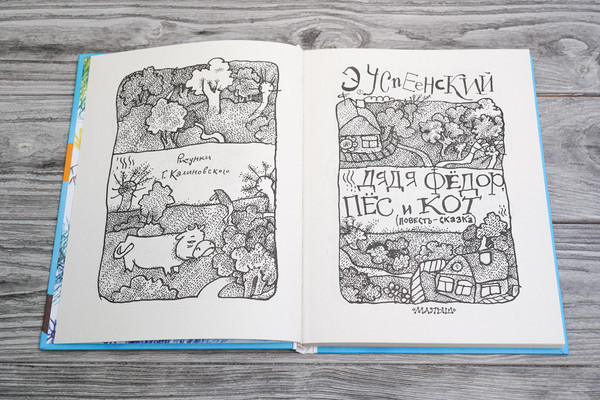 Рисунки
Г. Калиновского
Э. УСпЕеНСКИЙ
ДЯДЯ ФЁДОР
ПЁС и КОТ
(повесть-сказка)
"МАЛЫШ"